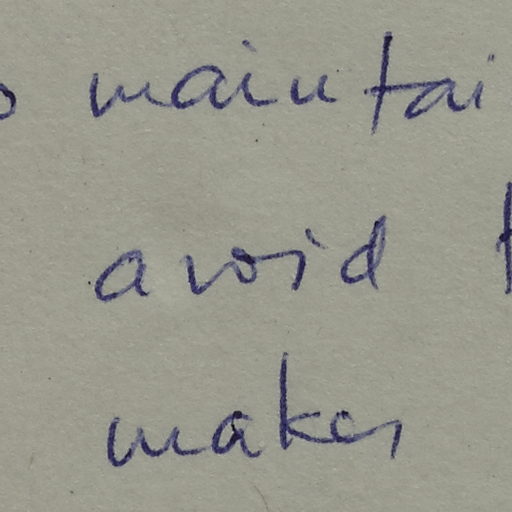 maintai
avoid
makes